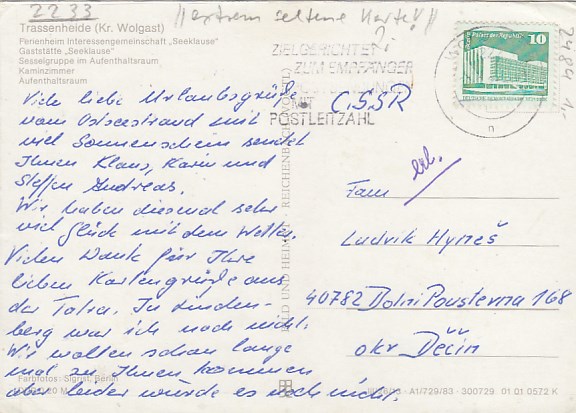 2233
||extrem seltene Karte!!||
Trassenheide (Kr. Wolgast)
Ferienheim Interessengemeinschaft „Seeklause"
Gaststätte „Seeklause"
Sesselgruppe im Aufenthaltsraum
Kaminzimmer
Aufenthaltsraum
Viele liebe Urlaubsgrüße
vom Ostseestrand mit
viel Sonnenschein sendet
Ihnen Klaus, Karin und
Steffen Andreas.
Wir haben diesmal sehr
viel Glück mit dem Wetter.
Vielen Dank für Ihre
lieben Kartengrüße aus
der Tatra. In Linden-
berg war ich noch nicht.
Wir wollten schon lange
mal zu Ihnen kommen
aber leider wurde es noch nicht.
Farbfotos: Sigrist, Berlin
BILD UND HEIMAT REICHENBACH (VOGTL)
ZIELGERICHTET
ZUM EMPFÄNGER
MIT
POSTLEITZAHL
ČSSR
Palast der Republik
10
2484
erl.
Fam
Ludvik Hyneš
40782 Dolni Poustevna 168
okr Děčín
A1/729/83 · 300729 01 01 0572 K